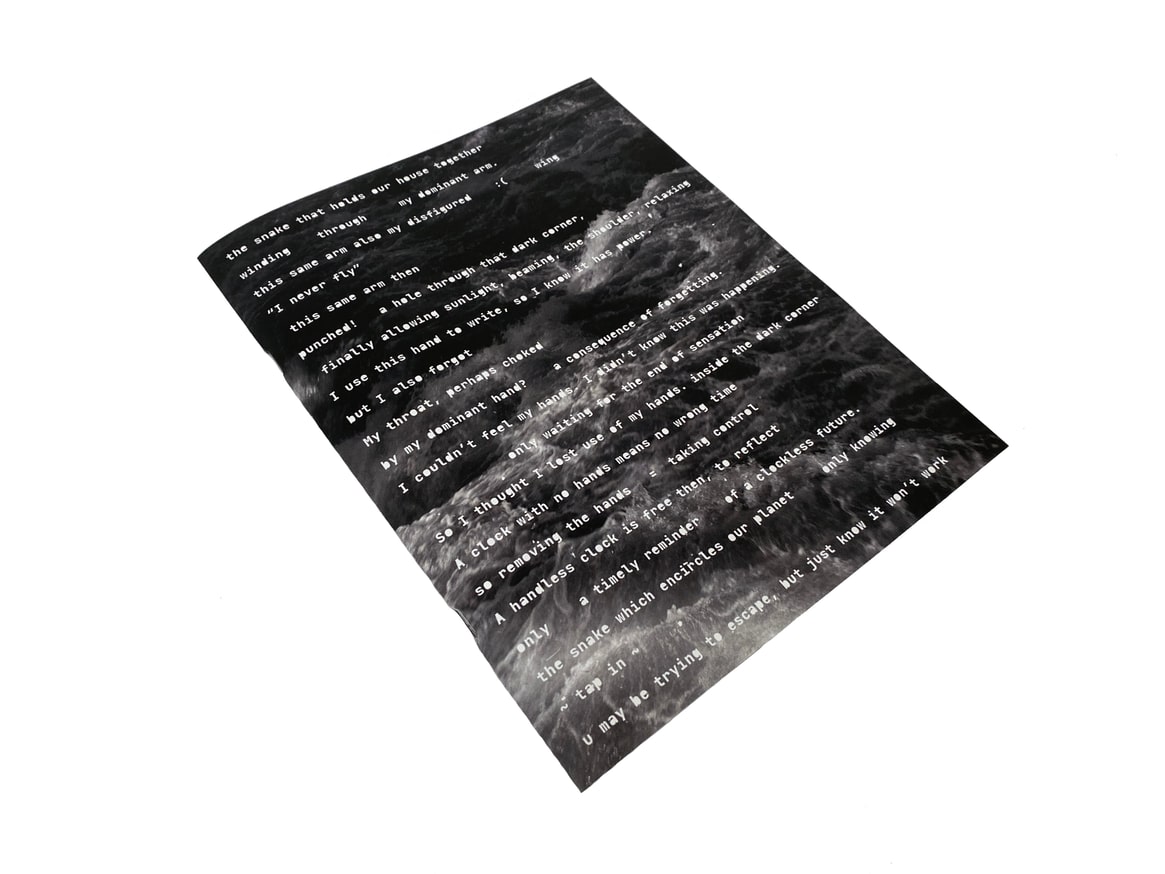 the snake that holds our house together
winding through my dominant arm,
this same arm also my disfigured :( wing
“I never fly”
this same arm then
punched! a hole through that dark corner,
finally allowing sunlight, beaming, the shoulder, relaxing
I use this hand to write, so I know it has power,
but I also forgot
My throat, perhaps choked
by my dominant hand? a consequence of forgetting.
I couldn’t feel my hands, I didn’t know this was happening.
only waiting for the end of sensation
So I thought I lost use of my hands. inside the dark corner
A clock with no hands means no wrong time
so removing the hands = taking control
A handless clock is free then, to reflect
only a timely reminder of a clockless future.
the snake which encircles our planet only knowing
~ tap in ~
u may be trying to escape, but just know it won’t work